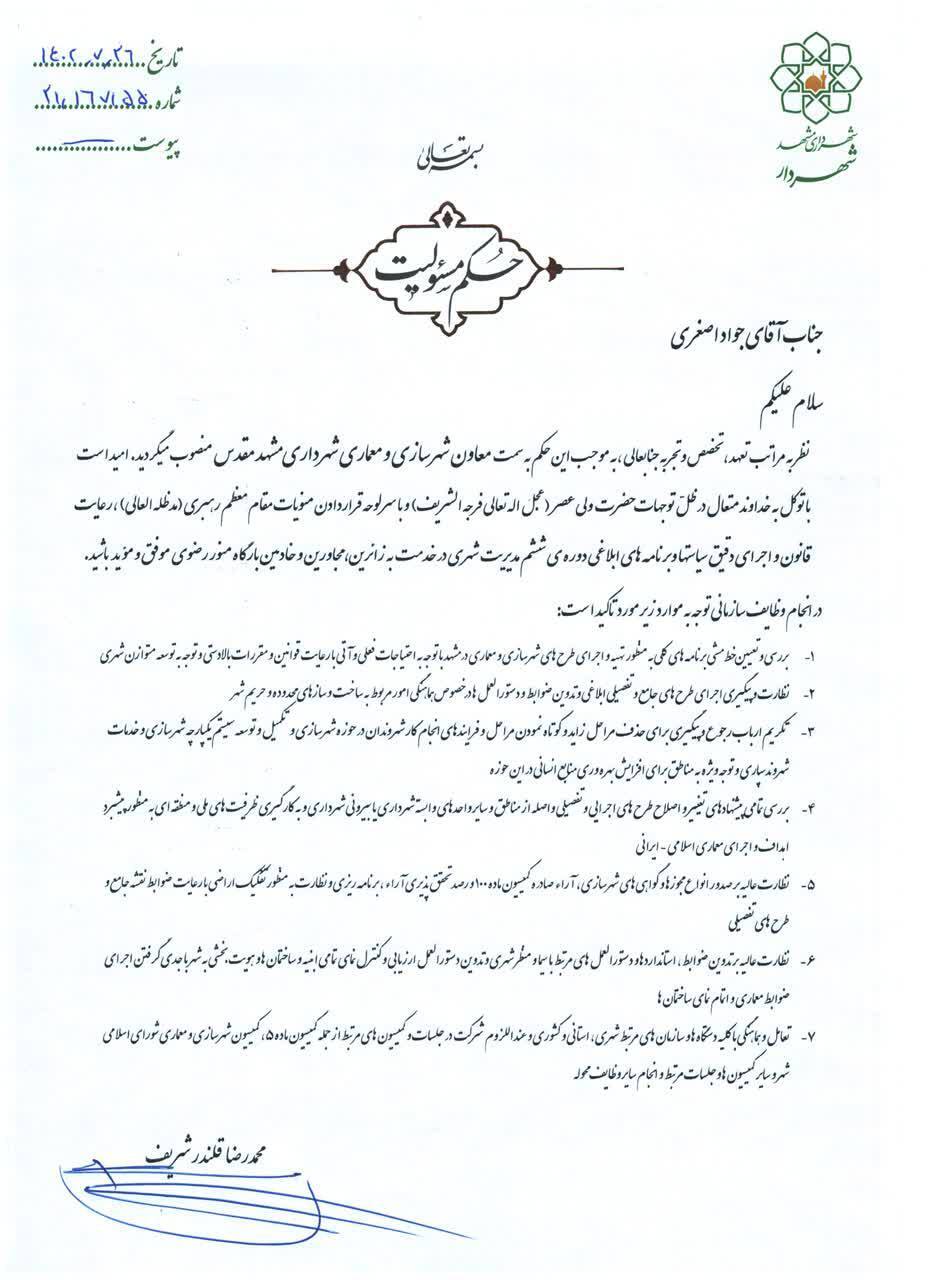 شهرداری مشهد
شهردار
تاریخ ۱۴۰۲,۷,۲۶
شماره
پیوست
بسمه تعالی
حکم مسئولیت
جناب آقای جواد اصغری
سلام علیکم
نظر به مراتب تعهد، تخصص و تجربه جنابعالی، به موجب این حکم به سمت معاون شهرسازی و معماری شهرداری مشهد مقدس منصوب میگردید. امید است
با توکل به خداوند متعال در ظلّ توجهات حضرت ولی عصر (عجل اله تعالی فرجه الشریف) و با سرلوحه قرار دادن منویات مقام معظم رهبری (مدظله العالی)، رعایت
قانون و اجرای دقیق سیاستها و برنامه های ابلاغی دوره ی ششم مدیریت شهری در خدمت به زائرین، مجاورین و خادمین بارگاه منور رضوی موفق و مؤید باشید.
در انجام وظایف سازمانی توجه به موارد زیر مورد تاکید است:
۱- بررسی و تعیین خط مشی برنامه های کلی به منظور تهیه و اجرای طرح های شهرسازی و معماری در مشهد با توجه به احتیاجات فعلی و آتی با رعایت قوانین و مقررات بالادستی و توجه به توسعه متوازن شهری
۲- نظارت و پیگیری اجرای طرح های جامع و تفصیلی ابلاغی و تدوین ضوابط و دستورالعمل ها در خصوص هماهنگی امور مربوط به ساخت و سازهای محدوده و حریم شهر
۳- تکریم ارباب رجوع و پیگیری برای حذف مراحل زاید و کوتاه نمودن مراحل و فرایندهای انجام کار شهروندان در حوزه شهرسازی و تکمیل و توسعه سیستم یکپارچه شهرسازی و خدمات
شهروندسپاری و توجه ویژه به مناطق برای افزایش بهره وری منابع انسانی در این حوزه
۴- بررسی تمامی پیشنهادهای تغییر و اصلاح طرح های اجرایی و تفصیلی واصله از مناطق و سایر واحدهای وابسته شهرداری یا بیرونی شهرداری و به کارگیری ظرفیت های ملی و منطقه ای به منظور پیشبرد
اهداف و اجرای معماری اسلامی - ایرانی
۵- نظارت عالیه بر صدور انواع مجوزها و گواهی های شهرسازی، آراء صادره کمیسیون ماده ۱۰۰ و رصد تحقق پذیری آراء، برنامه ریزی و نظارت به منظور تفکیک اراضی با رعایت ضوابط نقشه جامع و
طرح های تفصیلی
۶- نظارت عالیه بر تدوین ضوابط، استانداردها و دستورالعمل های مرتبط با سیما و منظر شهری و تدوین دستورالعمل ارزیابی و کنترل نمای تمامی ابنیه و ساختمان ها و هویت بخشی به شهر با جدی گرفتن اجرای
ضوابط معماری و اتمام نمای ساختمان ها
۷- تعامل و هماهنگی با کلیه دستگاه ها و سازمان های مرتبط شهری، استانی و کشوری و عنداللزوم شرکت در جلسات و کمیسیون های مرتبط از جمله کمیسیون ماده ۵، کمیسیون شهرسازی و معماری شورای اسلامی
شهر و سایر کمیسیون ها و جلسات مرتبط و انجام سایر وظایف محوله
محمدرضا قلندر شریف